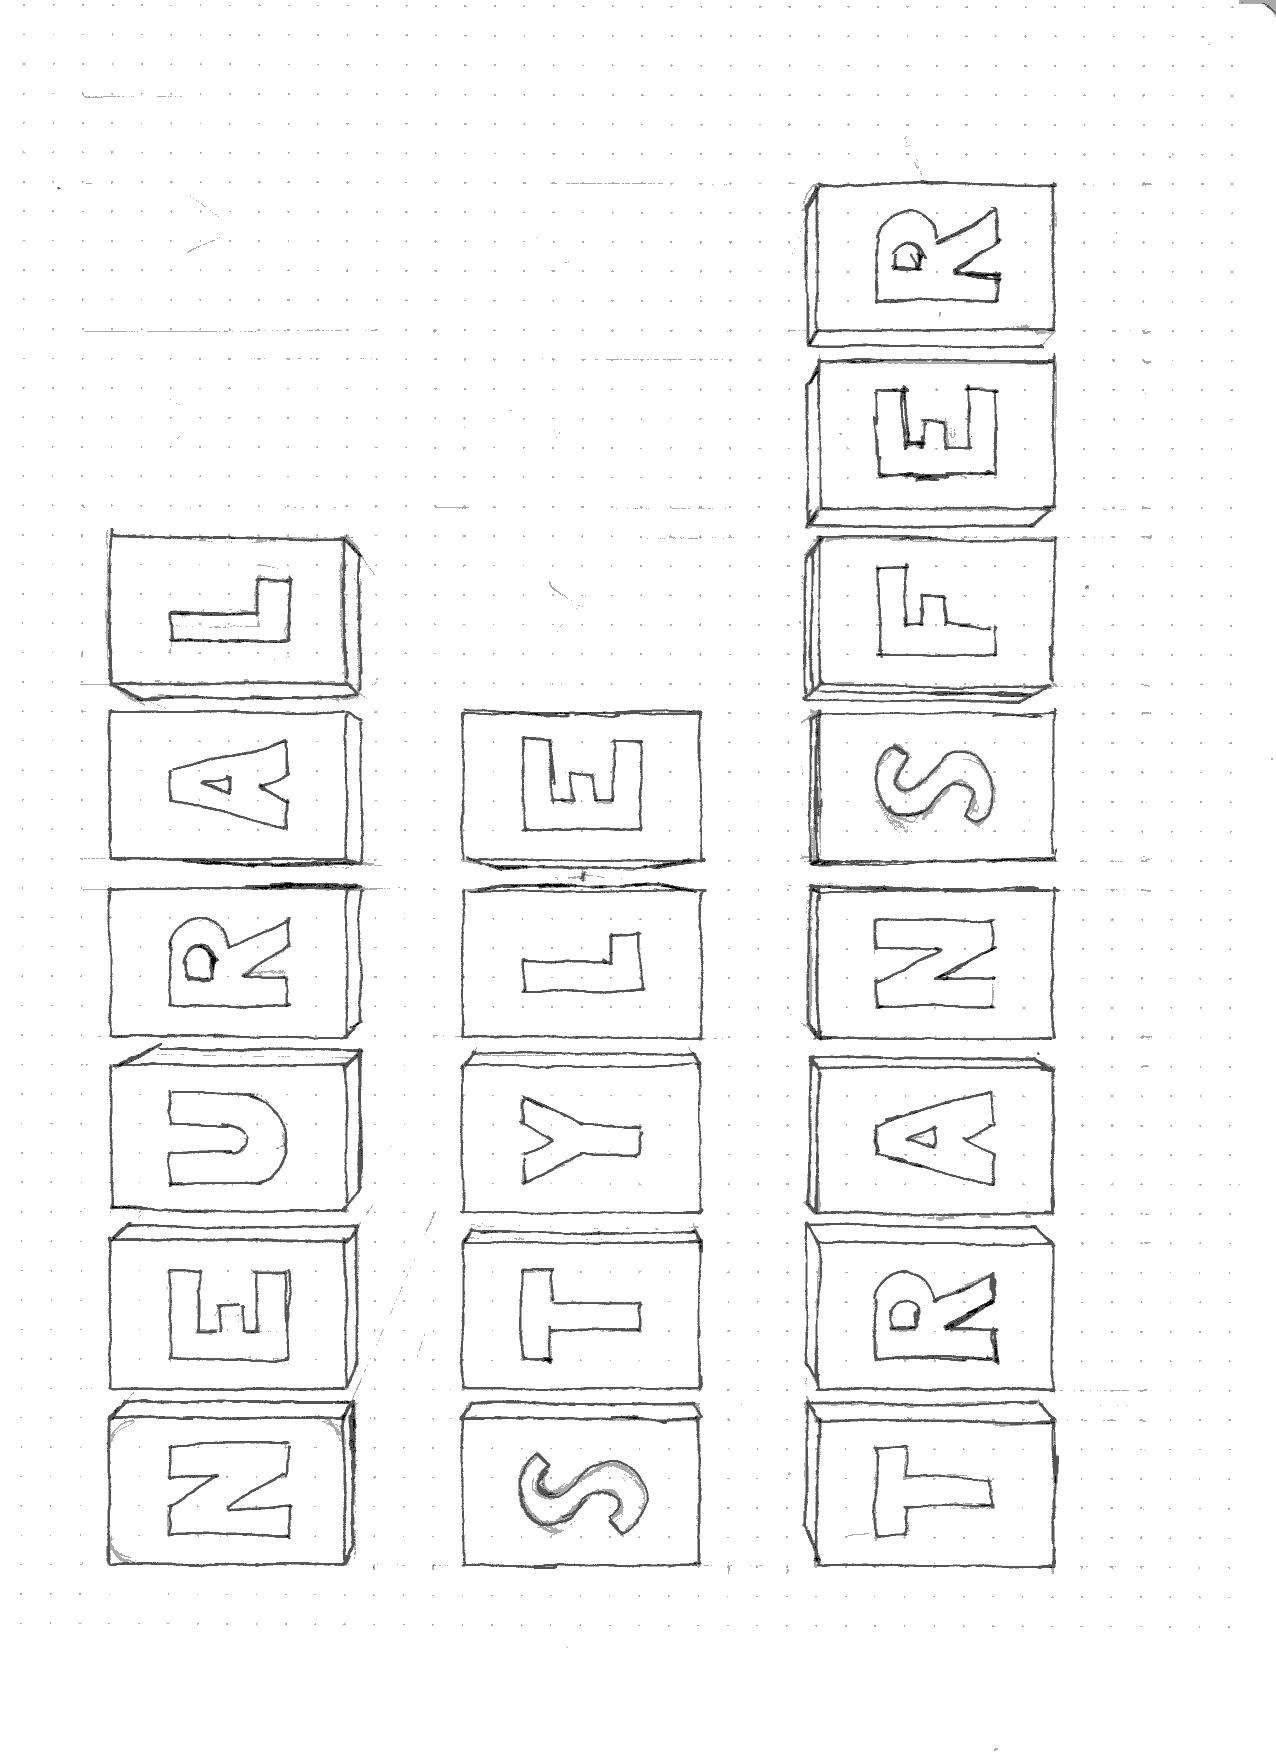 NEURAL
STYLE
TRANSFER